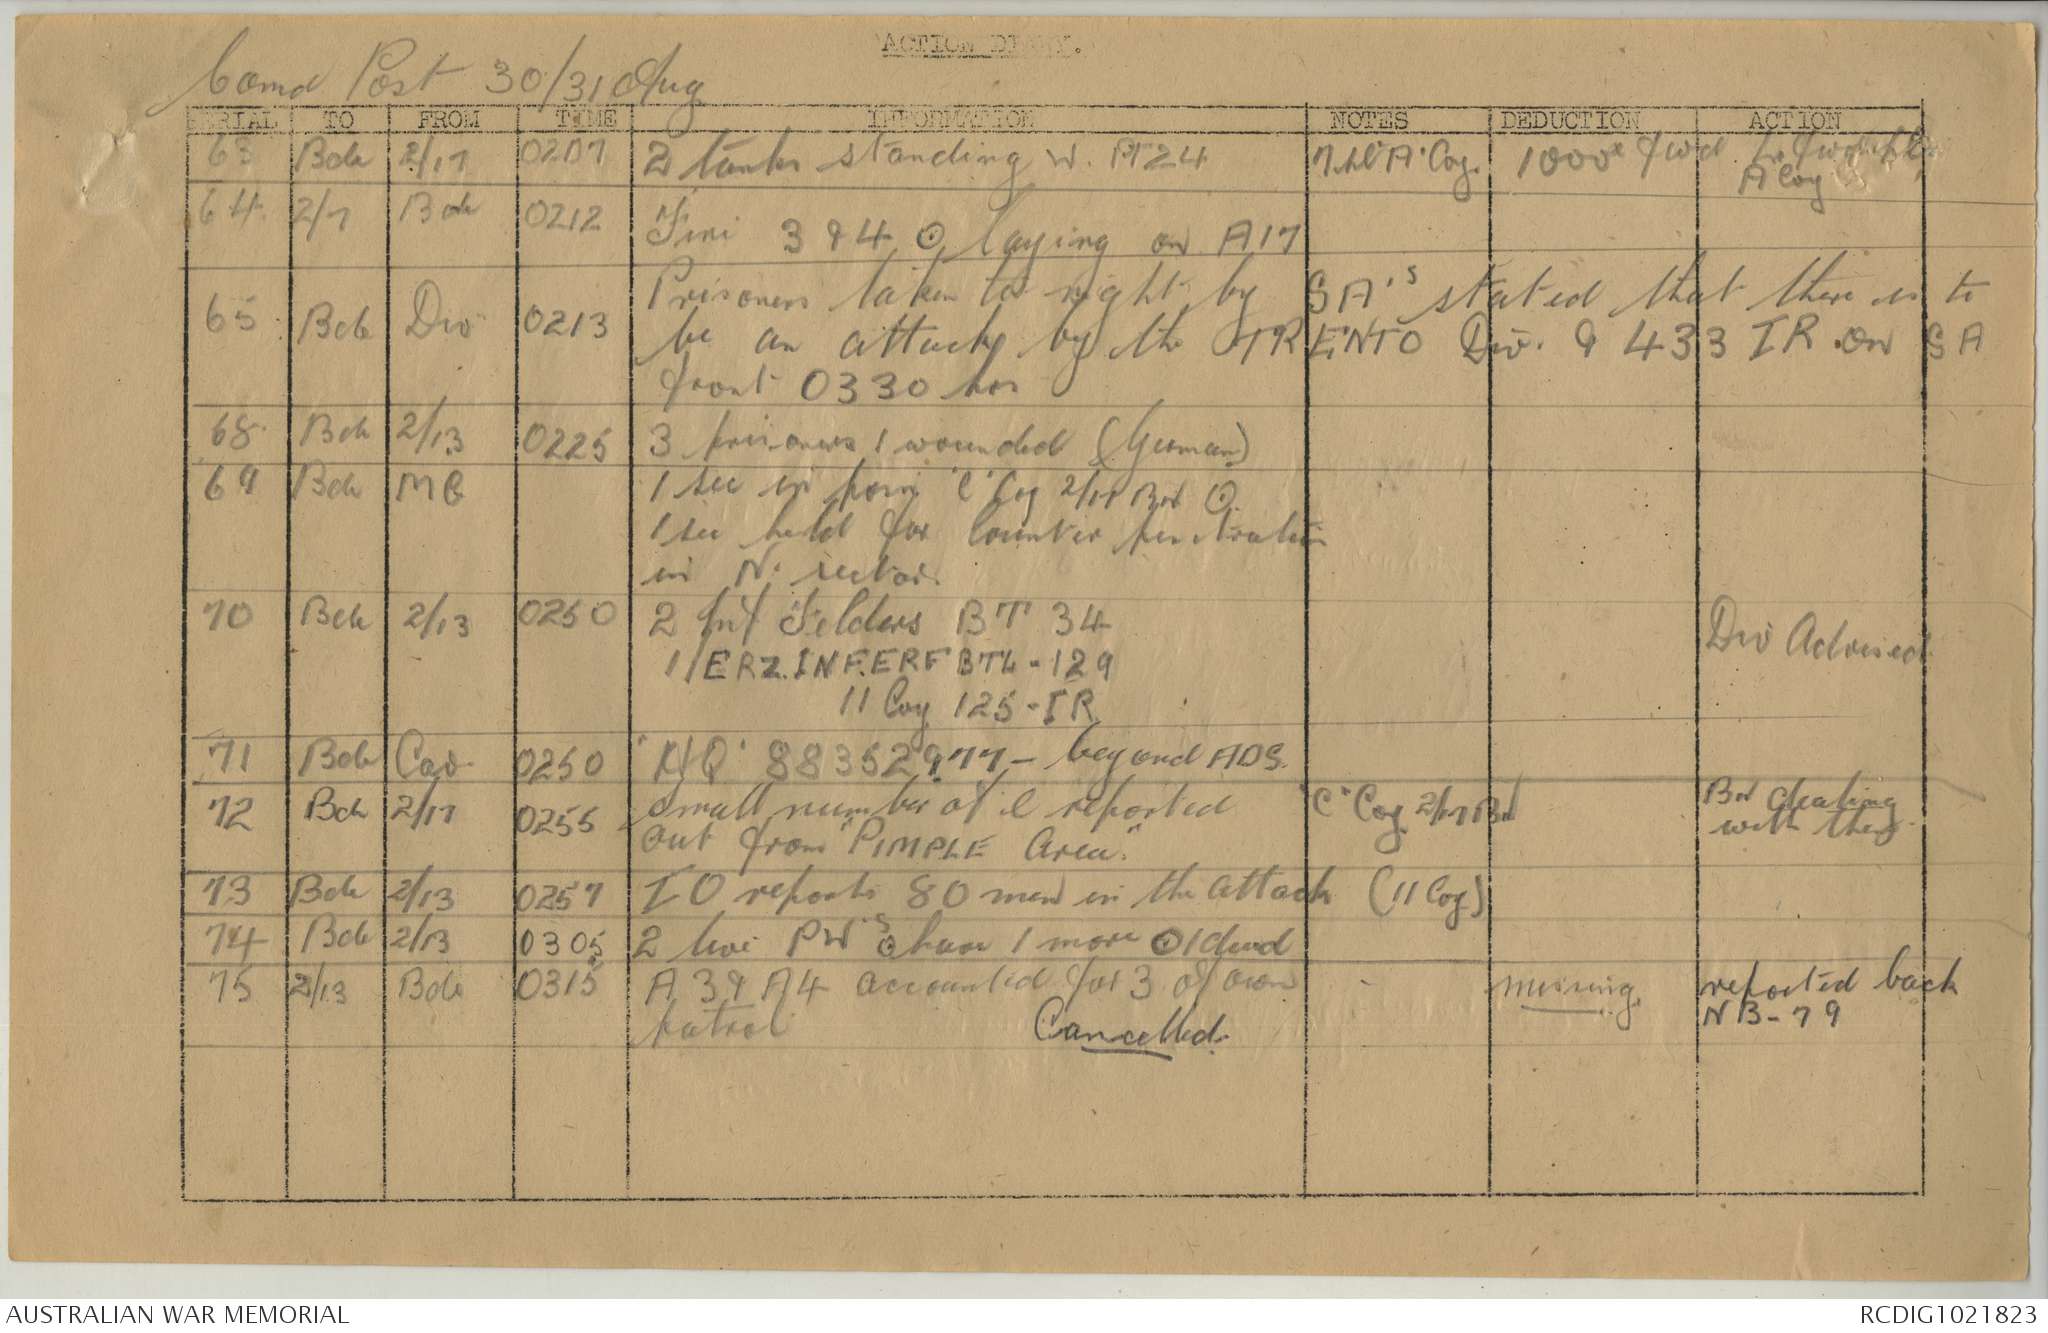 ACTION DIARY.
Comd Post 30/31 Aug
SERIAL TO FROM TIME INFORMATION NOTES DEDUCTION ACTION
63 Bde 2/17 0207 2 tanks standing W. PT24 'A' Coy. 1000x fwd
A Coy
64. 2/17 Bde 0212 3 & 4 laying on A17
65 Bde Div 0213 Prisoners taken to right by SA's stated that there is to
be an attack by the TRENTO Div. & 433 IR. on SA
front 0330 hrs
68. Bde 2/13 0225 3 prisoners 1 wounded (German)
69 Bde MG 1 sec in posn 'C' Coy 2/17 Bn
1 sec held for counter penetration
in N. sector.
70 Bde 2/13 0250 2 BT 34 Div Advised
1/ERZ.INF.ERF BTL-129
11 Coy 125-IR
71 Bde Cav. 0250 88352977 - beyond ADS.
72 Bde 2/17 0255 small number of E reported "C" Coy 2/17 Bn Bn dealing
out from "PIMPLE Area." with them
73 Bde 2/13 0257 IO reports 80 men in the attack (11 Coy)
74 Bde 2/13 0305 2 live PW's 1 more dead
75 2/13 Bde 0315 A3 & A4 accounted for 3 of own - missing. reported back
patrol Cancelled. NB-79
AUSTRALIAN WAR MEMORIAL RCDIG1021823